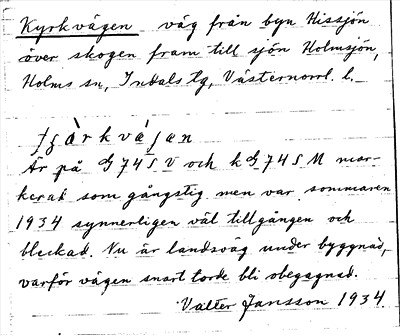 Kyrkvägen väg från byn Hissjön
över skogen fram till sjön Holmsjön,
Holms sn, Indals tg, Västernorrl. l.
Är på G 74 S V och k G 74 S M mar-
kerad som gångstig men var sommaren
1934 synnerligen väl tillgången och
bleckad. Nu är landsväg under byggnad,
varför vägen snart torde bli obegagnad.
Valter Jansson 1934.